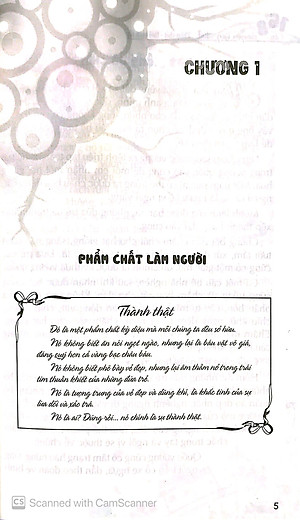 CHƯƠNG 1
PHẨM CHẤT LÀM NGƯỜI
Thành thật
Đó là một phẩm chất kỳ diệu mà mỗi chúng ta đều sở hữu.
Nó không biết ăn nói ngọt ngào, nhưng lại là báu vật vô giá,
đáng quý hơn cả vàng bạc châu báu.
Nó không biết phô bày vẻ đẹp, nhưng lại âm thầm nở trong trái
tim thuần khiết của những đứa trẻ.
Nó là tượng trưng của vẻ đẹp và dũng khí, là khắc tinh của sự
lừa dối và xảo trá.
Nó là ai? Đúng rồi... nó chính là sự thành thật.
5
CS Scanned with CamScanner